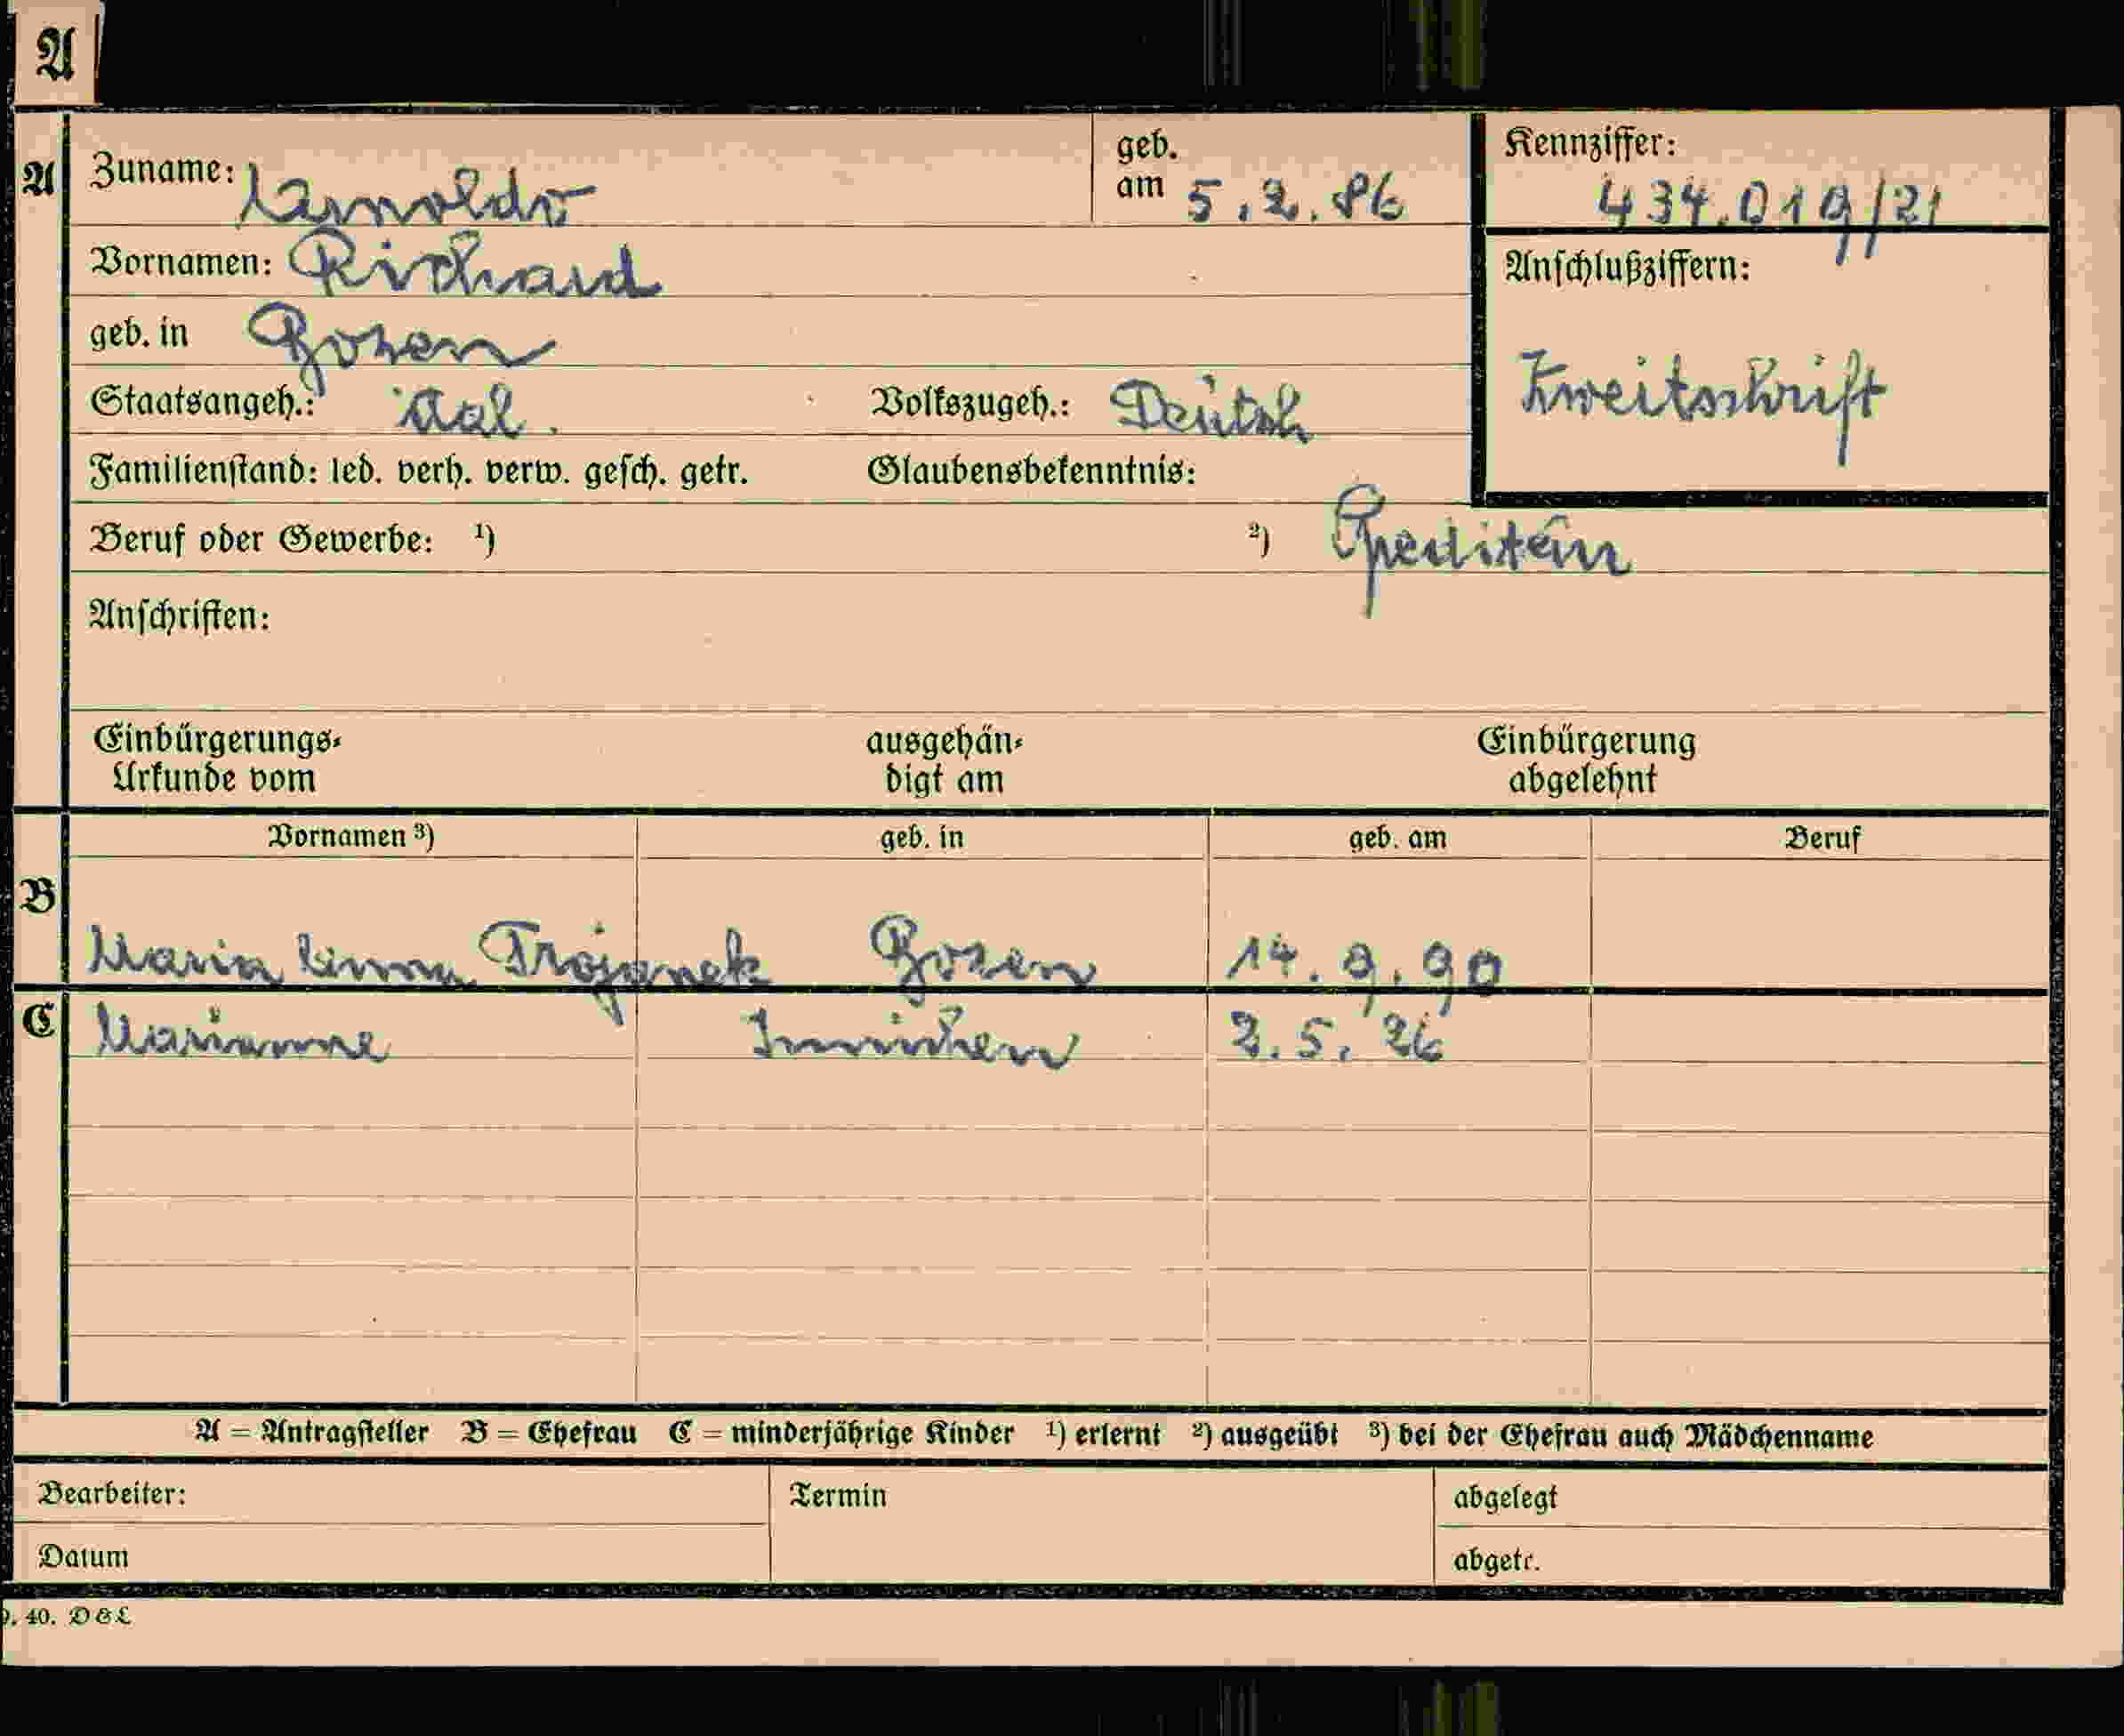 A
A
Zuname: Arnoldo
geb. am 5.2.86
Kennziffer: 434.019/21
Vornamen: Richard
Anschlußziffern:
geb. in Bozen
Zweitschrift
Staatsangeh.: ital. Volkszugeh.: Deutsch
Familienstand: led. verh. verw. gesch. getr. Glaubensbekenntnis:
Beruf oder Gewerbe: ¹) ²) Spediteur
Anschriften:
Einbürgerungs-Urkunde vom ausgehändigt am Einbürgerung abgelehnt
Vornamen ³) geb. in geb. am Beruf
B
Maria Anna Trojanek Bozen 14.9.90
C Marianne Innichen 2.5.26
A = Antragsteller B = Ehefrau C = minderjährige Kinder ¹) erlernt ²) ausgeübt ³) bei der Ehefrau auch Mädchenname
Bearbeiter: Termin abgelegt
Datum abgetr.
9. 40. D&L